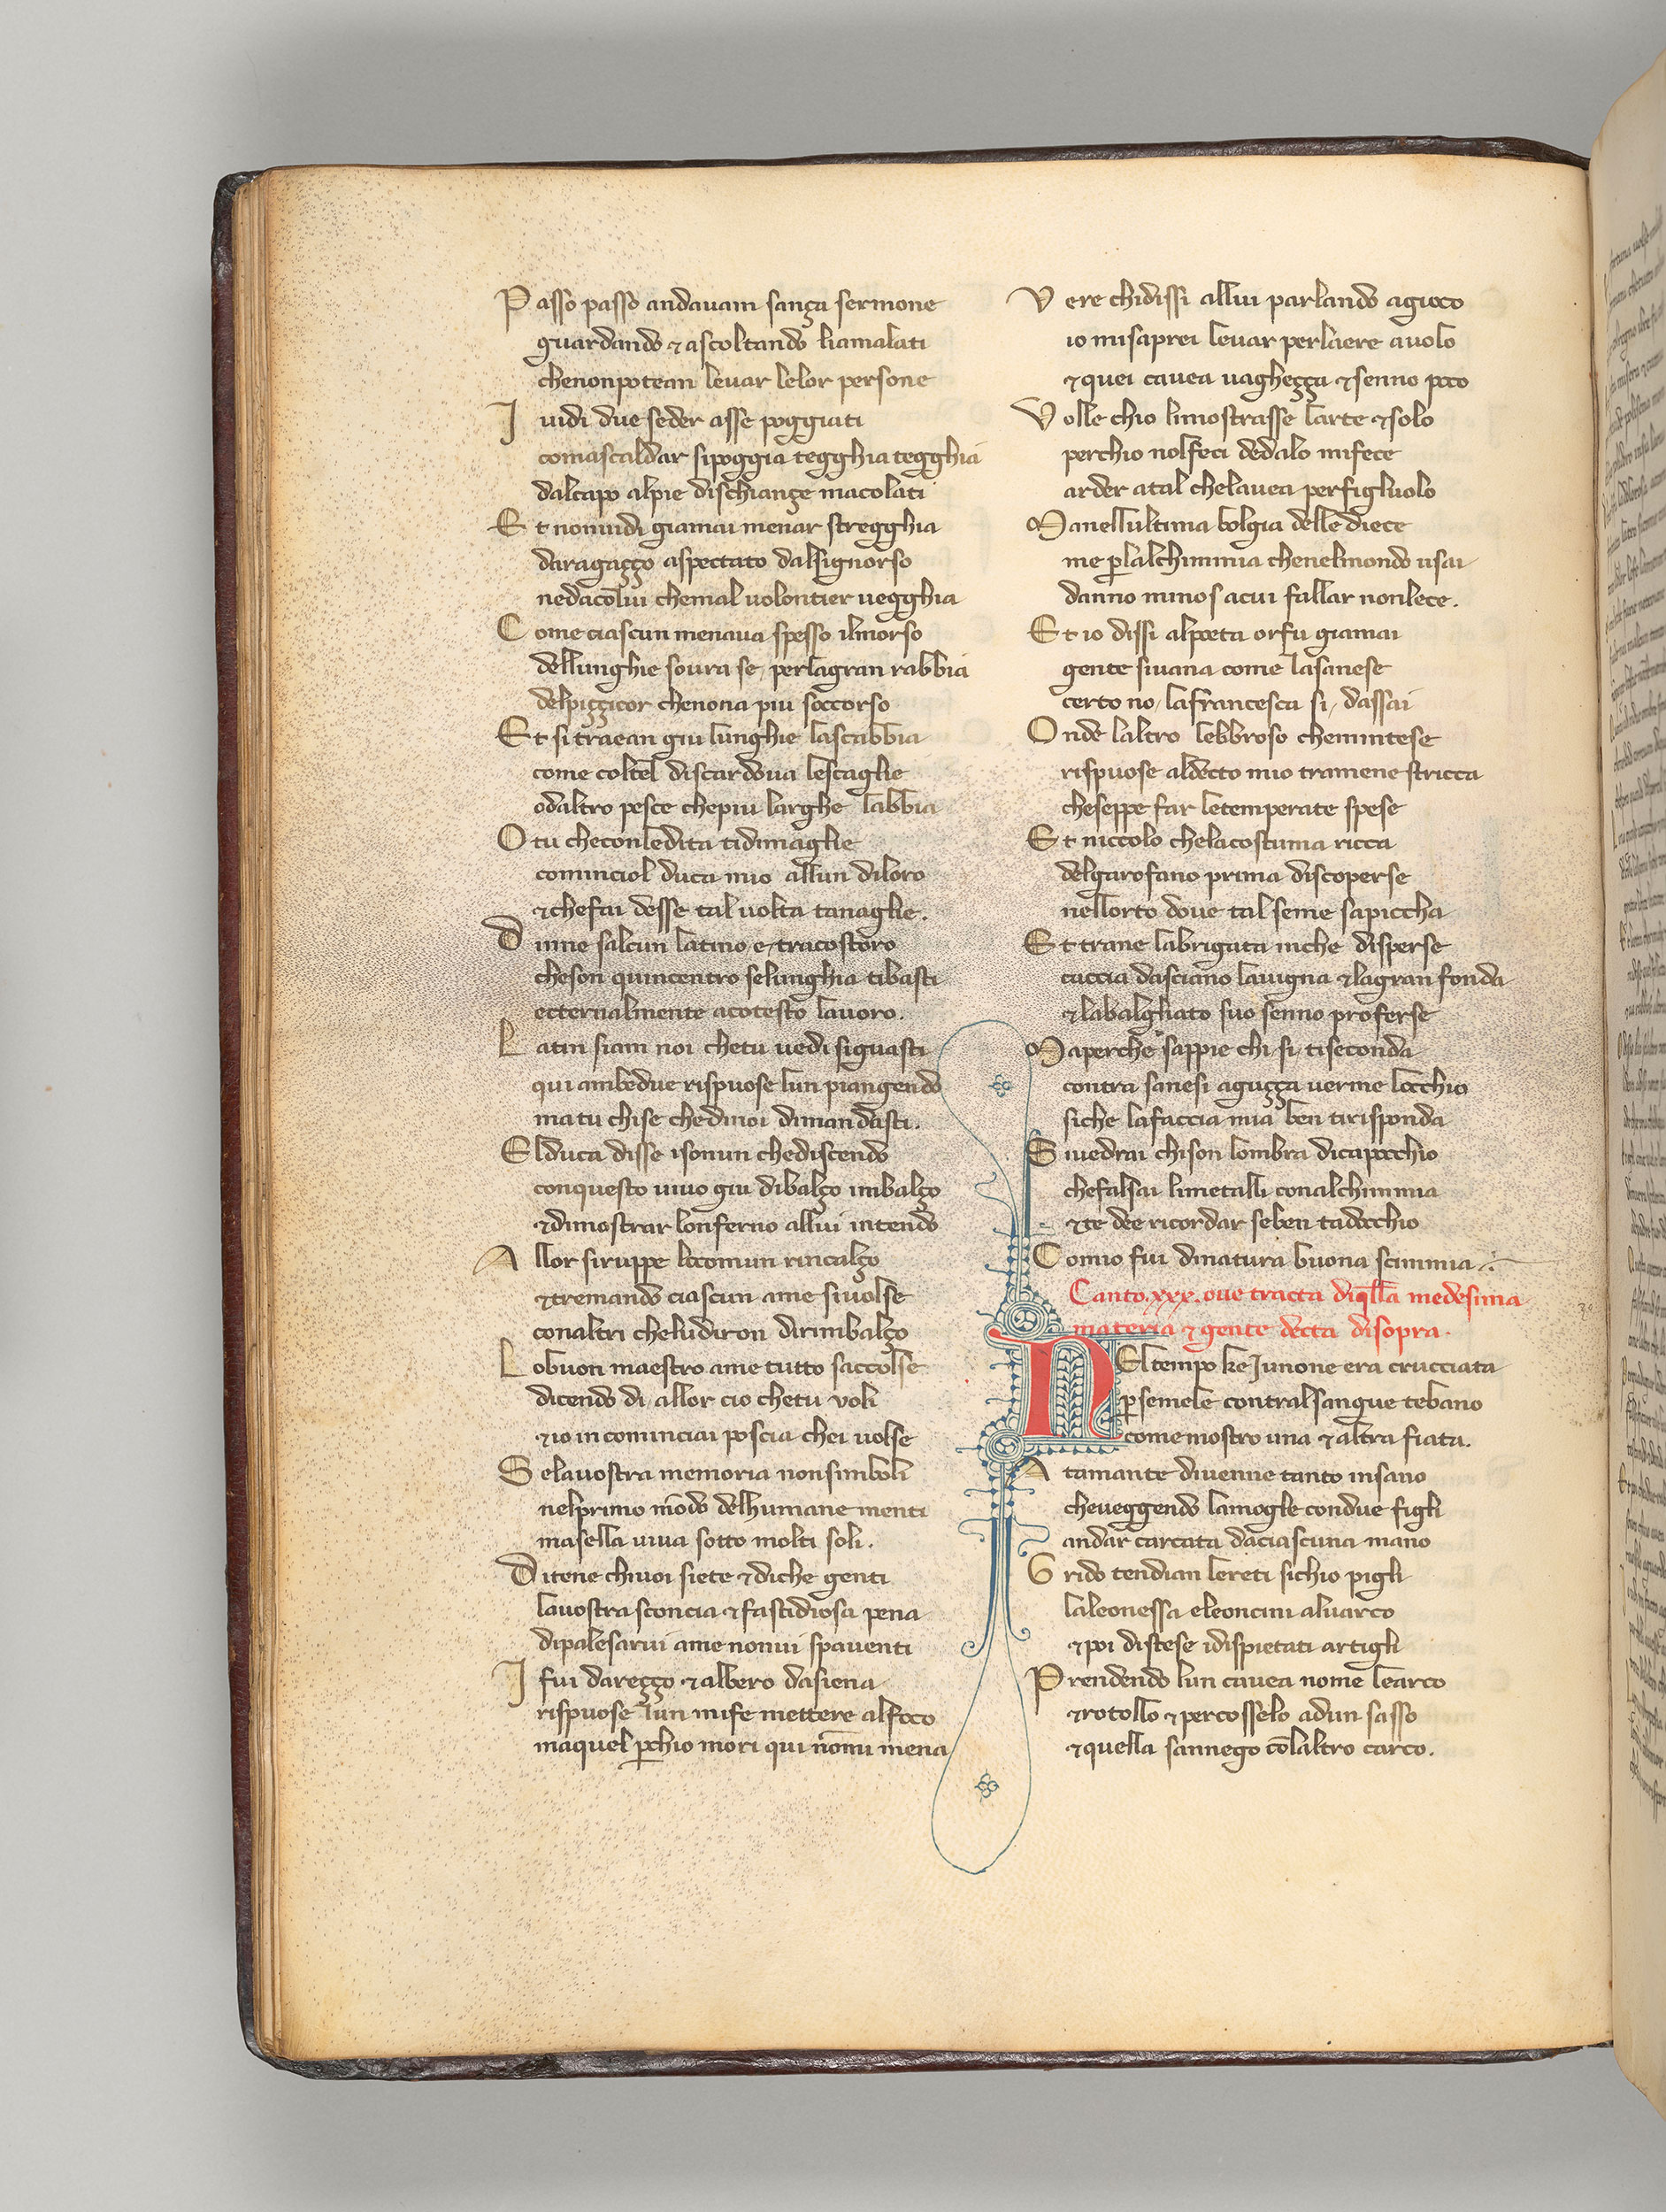 Passo passo andavam sança sermone
guardando & ascoltando liamalati
chenonpotean levar lelor persone
I vidi due seder asse poggiati
comascaldar sipoggia tegghia tegghia
dalcapo alpie dischiançe macolati
Et nonvidi giamai menar stregghia
daragaçço aspectato dalsignorso
nedacolui chemal volontier vegghia
Come ciascun menava spesso ilmorso
dellunghie sovra se / perlagran rabbia
delpiççicor chenona piu soccorso
Et si traean giu lunghie lascabbia
come coltel discardova lescaglie
odaltro pesce chepiu larghe labbia
O tu checonledita tidimaglie
cominciol duca mio allun diloro
& chefai desse tal volta tanaglie.
Dimne salcun latino e / tracostoro
cheson quincentro selunghia tibasti
etternalmente acotesto lavoro.
Latin siam noi chetu vedi siguasti
qui ambedue rispuose lun piangendo
ma tu chise chedinoi dimandasti.
Elduca disse isonun chediscendo
conquesto vivo giu dibalço inbalço
& dimostrar lonferno allui intendo
Allor siruppe locomun rincalço
& tremando ciascun ame sivolse
conaltri cheludiron dirimbalço
Lobuon maestro ame tutto saccolse
dicendo di / allor cio chetu voli
& io incominciai poscia chei volse
Selavostra memoria nonsimboli
nelprimo mondo delhumane menti
masella viva sotto molti soli.
Ditene chivoi siete & diche genti
lavostra sconcia & fastidiosa pena
dipalesarvi ame nonvi spaventi
I fui dareçço & albero dasiena
rispuose lun mife mettere alfoco
maquel pchio mori qui nomi mena
Vere chidissi allui parlando agioco
io misaprei levar perlaere avolo
& quei cavea vagheçça & senno poco
Volle chio limostrasse larte & solo
perchio nolfeci dedalo mifece
arder atal chelavea perfigliuolo
Manellultima bolgia delle diece
me plalchimmia chenelmondo usai
danno minos acui fallar nonlece.
Et io dissi alpoeta orfu giamai
gente sivana come lasanese
certo no / lafrancesca si / dassai
Onde laltro lebbroso chemintese
rispuose aldecto mio tramene stricca
cheseppe far letemperate spese
Et niccolo chelacostuma ricca
delgarofano prima discoperse
nellorto dove tal seme sapiccha
Et trane labrigata inche disperse
caccia dasciano lavigna & lagran fonda
& labalghato suo senno proferse
Maperche sappie chi si tiseconda
contra sanesi aguçça verme locchio
siche lafaccia mia ben tirisponda
Sivedrai chison lombra dicapocchio
chefalsai limetalli conalchimmia
& te dee ricordar seben tadocchio
Comio fui dinatura buona scimmia
Canto .xxx. ove tracta diqlla medesima
materia & gente decta disopra.
NEl tempo ke Junone era crucciata
psemele contralsangue tebano
come mostro una & altra fiata.
Atamante divenne tanto insano
cheveggendo lamoglie condue figli
andar carcata daciascuna mano
Grido tendian lereti sichio pigli
laleonessa eleoncini alvarco
& poi distese idispietati artigli
Prendendo lun cavea nome learco
& rotollo & percosselo adun sasso
& quella sannego colaltro carco.